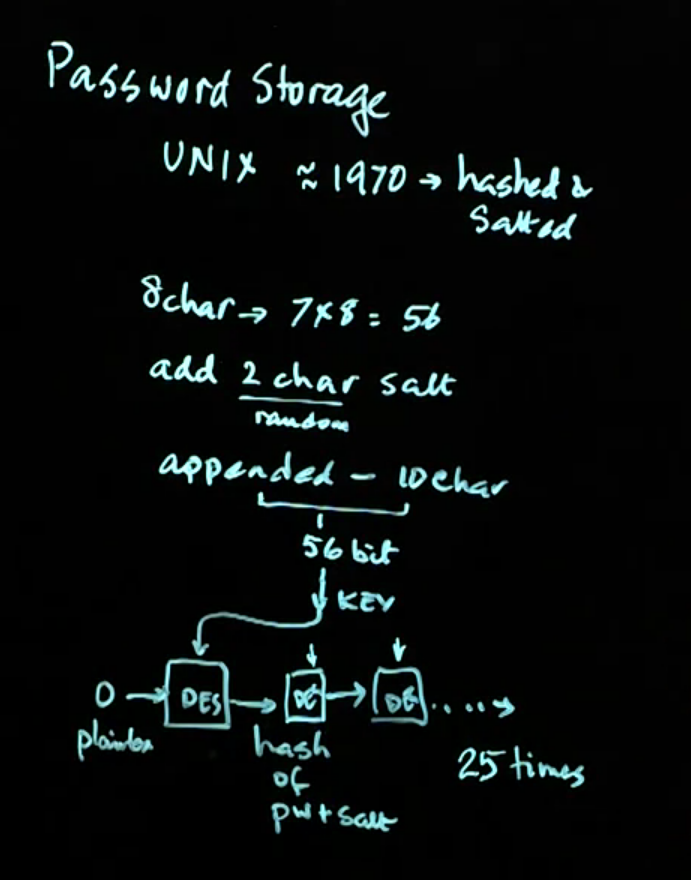 Password Storage
UNIX ≈ 1970 → hashed &
Salted
8char → 7×8 = 56
add 2 char salt
random
appended - 10char
56 bit
KEY
0 → DES → DES → DES ....→
plaintex
hash
of
pw + salt
25 times